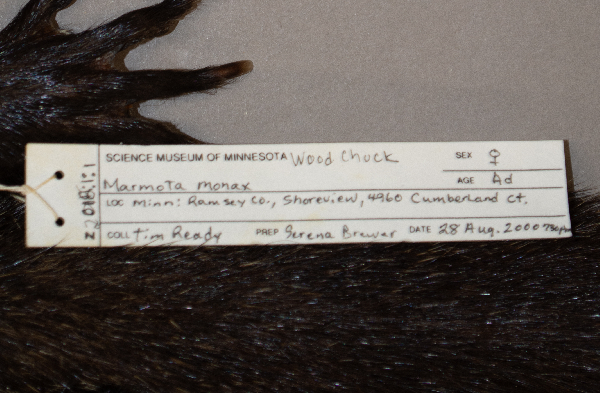 SCIENCE MUSEUM OF MINNESOTA Wood Chuck SEX ♀
Marmota monax AGE Ad
LOC Minn: Ramsey Co., Shoreview, 4960 Cumberland Ct.
COLL Tim Ready PREP Serena Brewer DATE 28 Aug. 2000 730pm